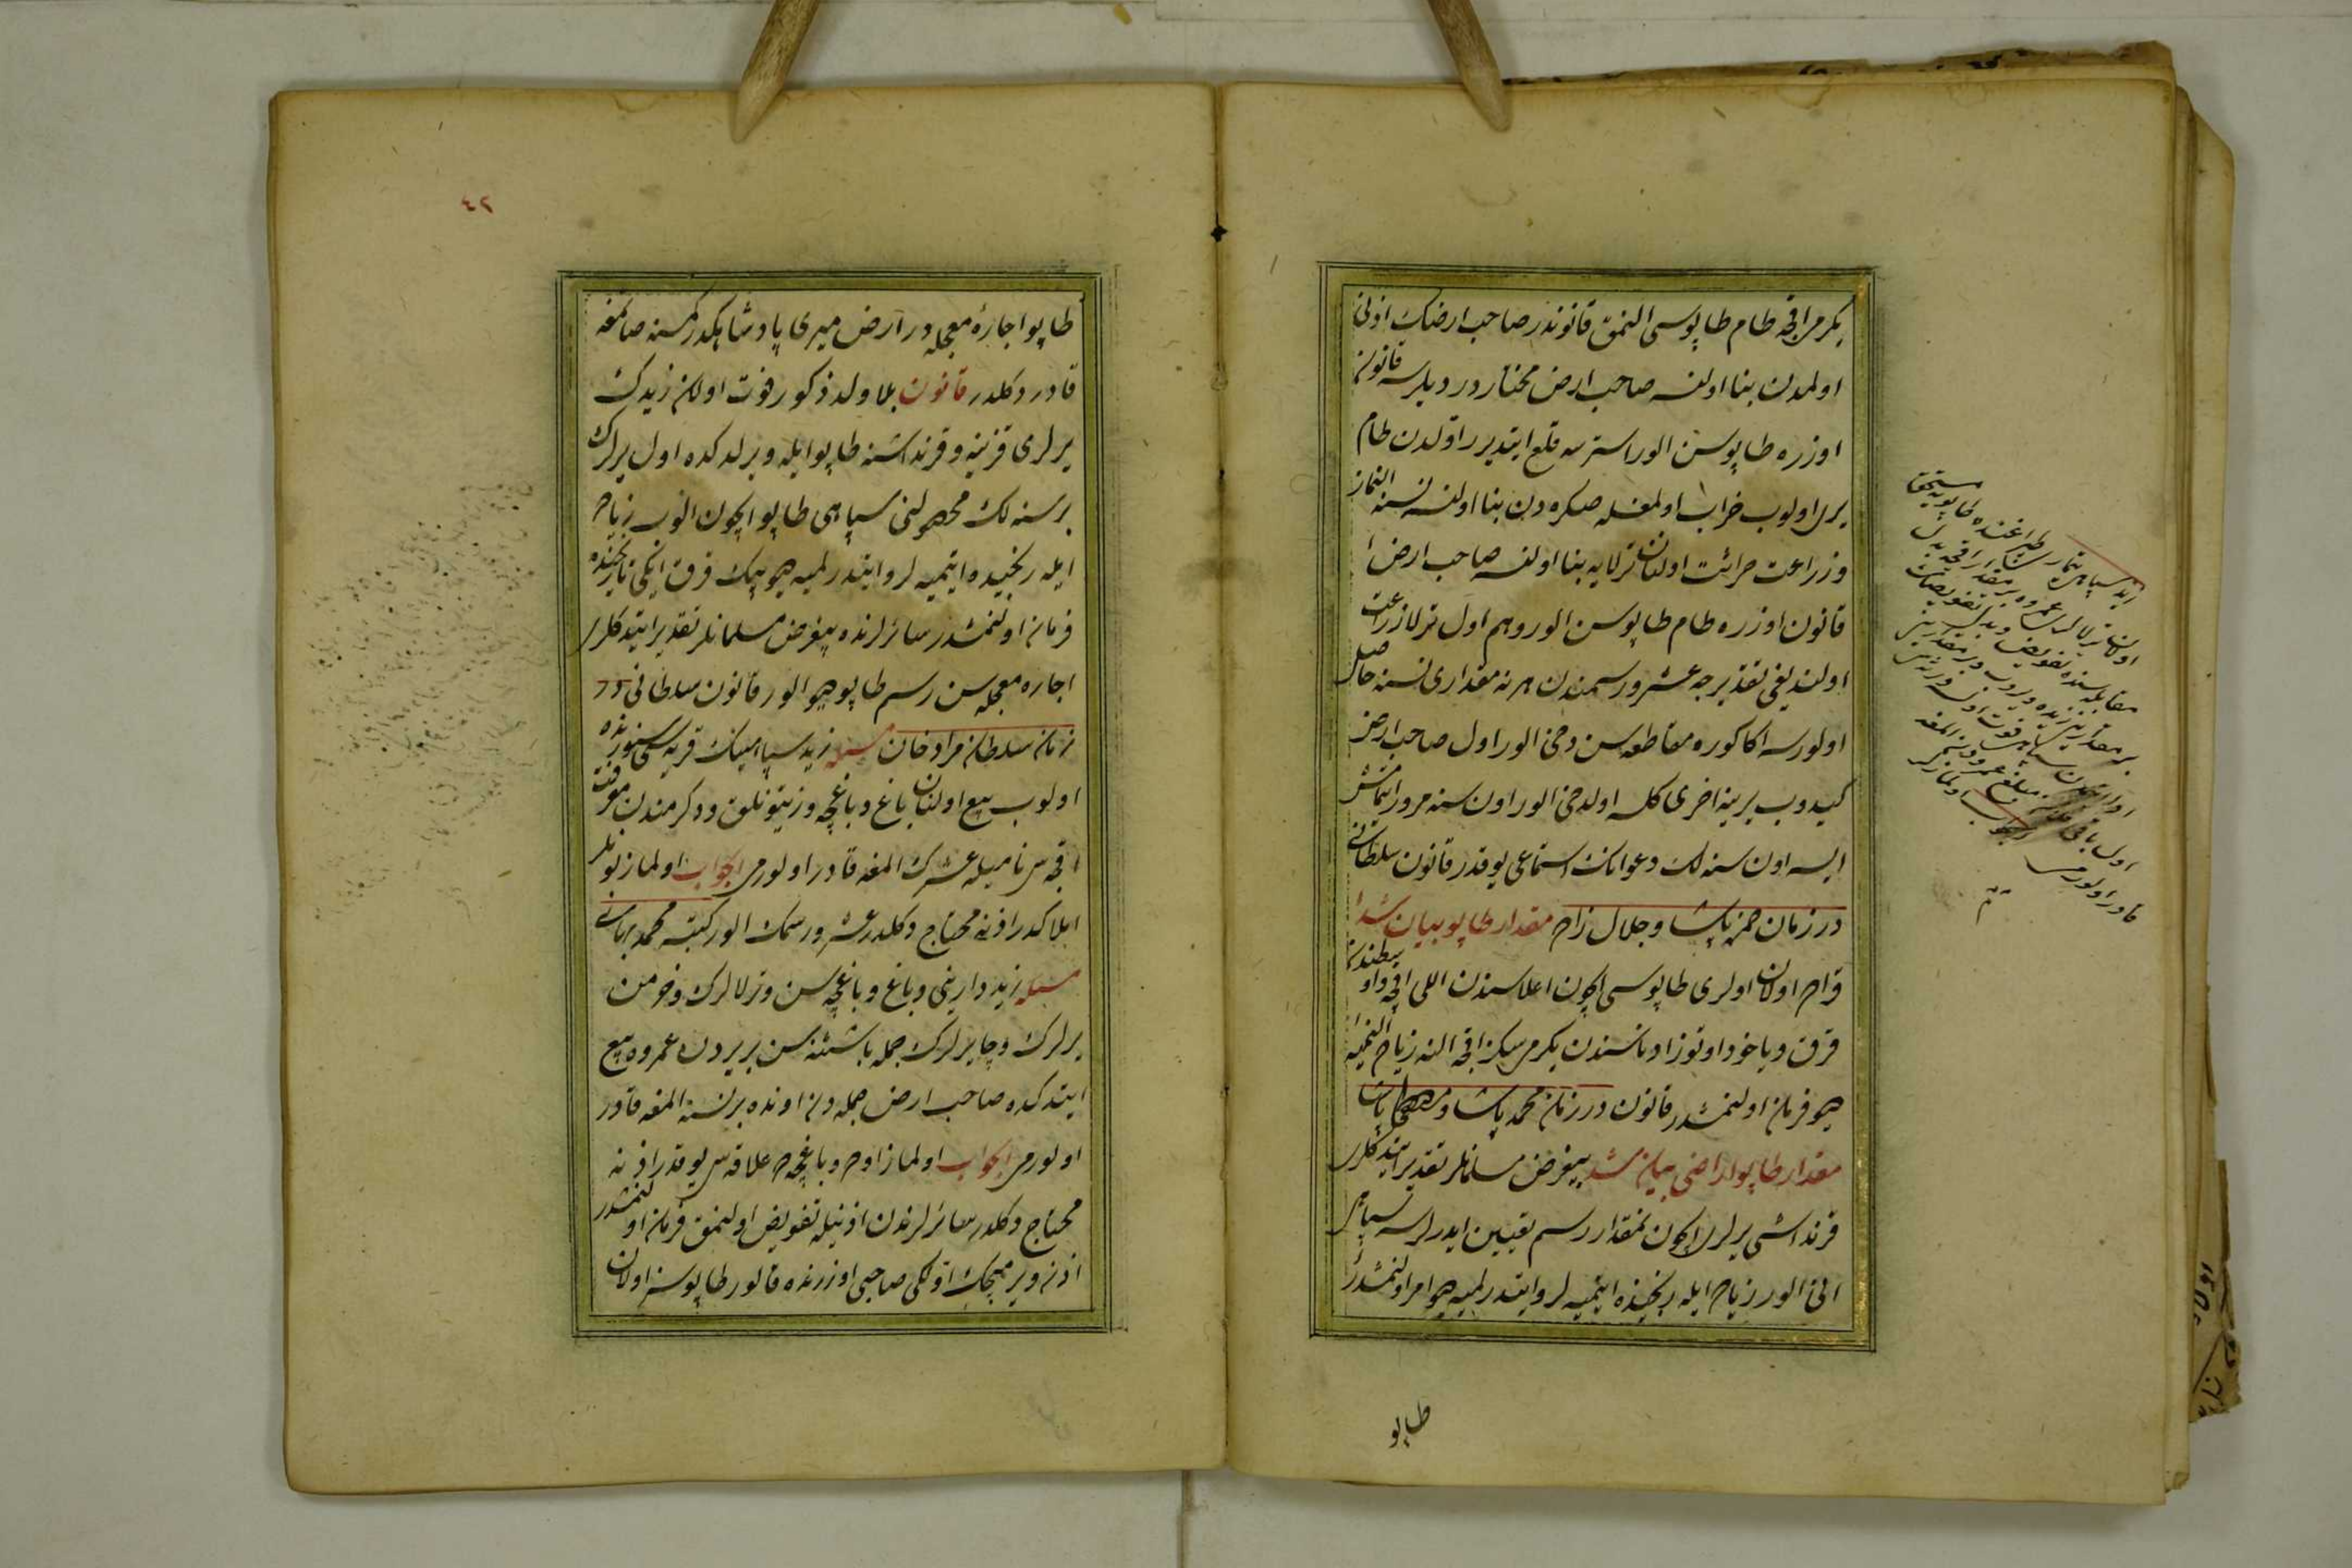 یکرمی اقچه طام طاپوسی النمق قانوندر صاحب ارضك اذنی
اولمدن بنا اولنسه صاحب ارض مختاردر دیلرسه قانون
اوزره طاپوسن الور استرسه قلع ایتدیرر اوّلدن طام
یری اولوب خراب اولمغله صکره دن بنا اولنسه نسنه النماز
وزراعت حراثت اولنان ترلایه بنا اولنسه صاحب ارض
قانون اوزره طام طاپوسن الور وهم اول ترلا زراعت
اولندیغی تقدیرجه عشر ورسمندن هر نه مقداری نسنه حاصل
اولورسه اکا کوره مقاطعه سن دخی الور اول صاحب ارض
کیدوب یرینه اخری کلسه اولدخی الور اون سنه مرور ایتمش
ایسه اون سنه لك دعوانك استماعی یوقدر قانون سلطانی
در زمان حمزه پاشا وجلال زاده مقدار طاپو بیان شد
اولان اولری طاپوسی ایچون اعلاسندن اللی اقچه و اوسطندن
قرق ویاخود اوتوز ادناسندن یکرمی سکز اقچه النه زیاده النمیه
دیو فرمان اولنمشدر قانون در زمان محمد پاشا و
مقدار طاپو اراضی بیان شد بیغرض مسلمانلر تقدیر ایتدکلری
قرنداشی یرلری ایچون نمقدار رسم تعیین ایدرلرسه سپاهی
انی الور زیاده ایله رنجیده ایتمیه لر وایتدرلمیه دیو امر اولنمشدر
طاپو
زید سپاهی تیماری طپراغنده طاپویه مستحق
اولان ترلالری عمروه بر مقدار اقچه بدل
مقابله سنده تفویض وبدل تفویضك
بر مقدارین زیده ویروب وبر مقدارین
ویرمدن سپاهی فوت اولسه ورثه سی
اول باقی قلان مبلغی عمرودن المغه
قادر اولورمی الجواب اولمازلر
٤٢
طاپو اجارۀ معجله در ارض میری پادشاهکدر کمسنه صاتمغه
قادر دکلدر قانون بلا ولد ذکور فوت اولان زیدك
یرلری قزینه و قرنداشنه طاپو ایله ویرلدکده اول یرلرك
بر سنه لك محصولنی سپاهی طاپو ایچون الوب زیاده
ایله رنجیده ایتمیه لر وایتدرلمیه دیو بیك قرق ایکی تاریخنده
فرمان اولنمشدر سائرلرنده بیغرض مسلمانلر تقدیر ایتدکلری
اجاره معجله سن رسم طاپو دیو الور قانون سلطانی در
زمان سلطان مراد خان مسئله زید سپاهینك قریه سی سنورنده
اولوب بیع اولنان باغ وباغچه وزیتونلق ودکرمندن معرفت
اقچه سی نامیله عشرك المغه قادر اولورمی الجواب اولماز بونلر
املاکدر اذنه محتاج دکلدر عشر ورسمك الور کتبه محمد بهائی
مسئله زید دارینی وباغ وباغچه سن وترلالرك وخرمن
یرلرك وچایرلرك جمله باشتنه سن بر یردن عمروه بیع
ایتدکده صاحب ارض جمله دن اونده بر نسنه المغه قادر
اولورمی الجواب اولماز اوه وباغچه یه علاقه سی یوقدر اذنه
محتاج دکلدر سائر لرندن اذنیله تفویض اولنمق فرمان اولنمشدر
اذن ویرمیجك اوّلکی صاحبی اوزرنده قالور طاپوسز اولان